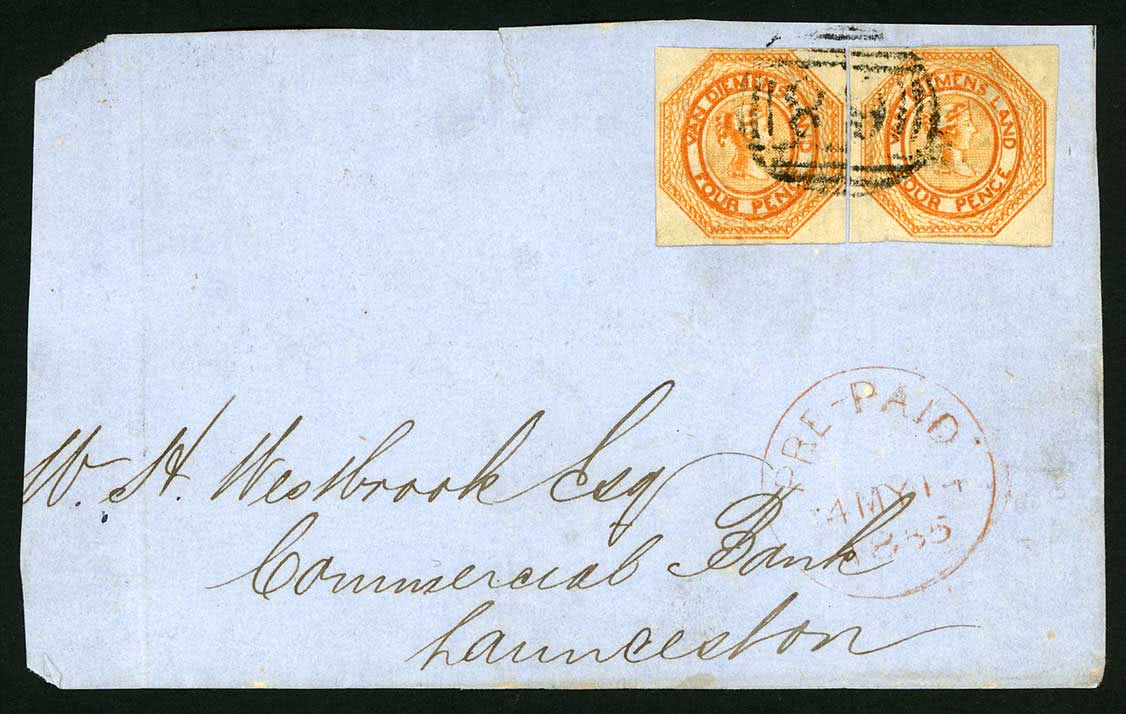 VAN DIEMENS LAND
FOUR PENCE
DIEMENS LAND
FOUR PENCE
PRE-PAID
4 MY 14
1855
W. H. Westbrook Esq
Commercial Bank
Launceston